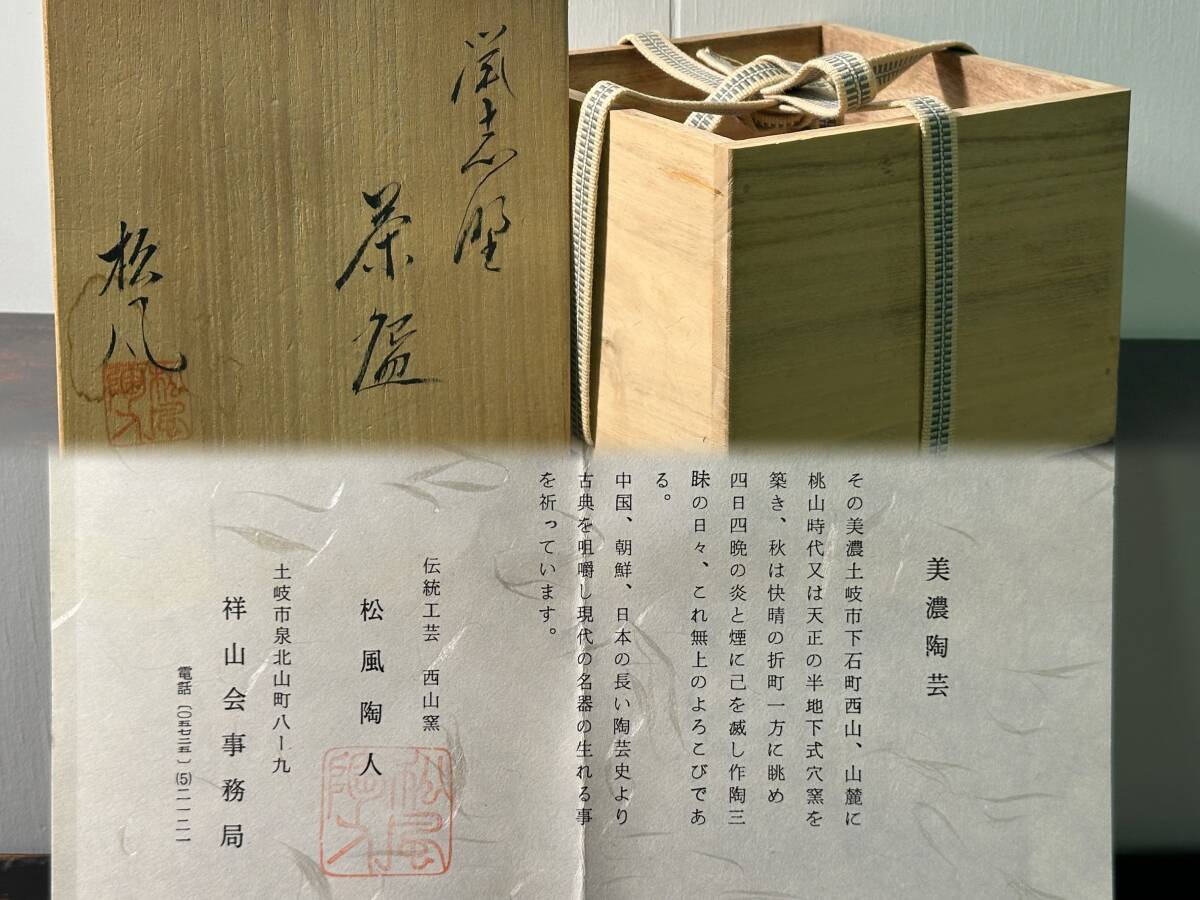 鼡志野
茶盌
松風
松風陶人
美濃陶芸
その美濃土岐市下石町西山、山麓に
桃山時代又は天正の半地下式穴窯を
築き、秋は快晴の折町一方に眺め
四日四晩の炎と煙に己を滅し作陶三
昧の日々、これ無上のよろこびであ
る。
中国、朝鮮、日本の長い陶芸史より
古典を咀嚼し現代の名器の生れる事
を祈っています。
伝統工芸 西山窯
松風陶人
松風陶人
土岐市泉北山町八ー九
祥山会事務局
電話〔〇五七二五〕(5)二一二一